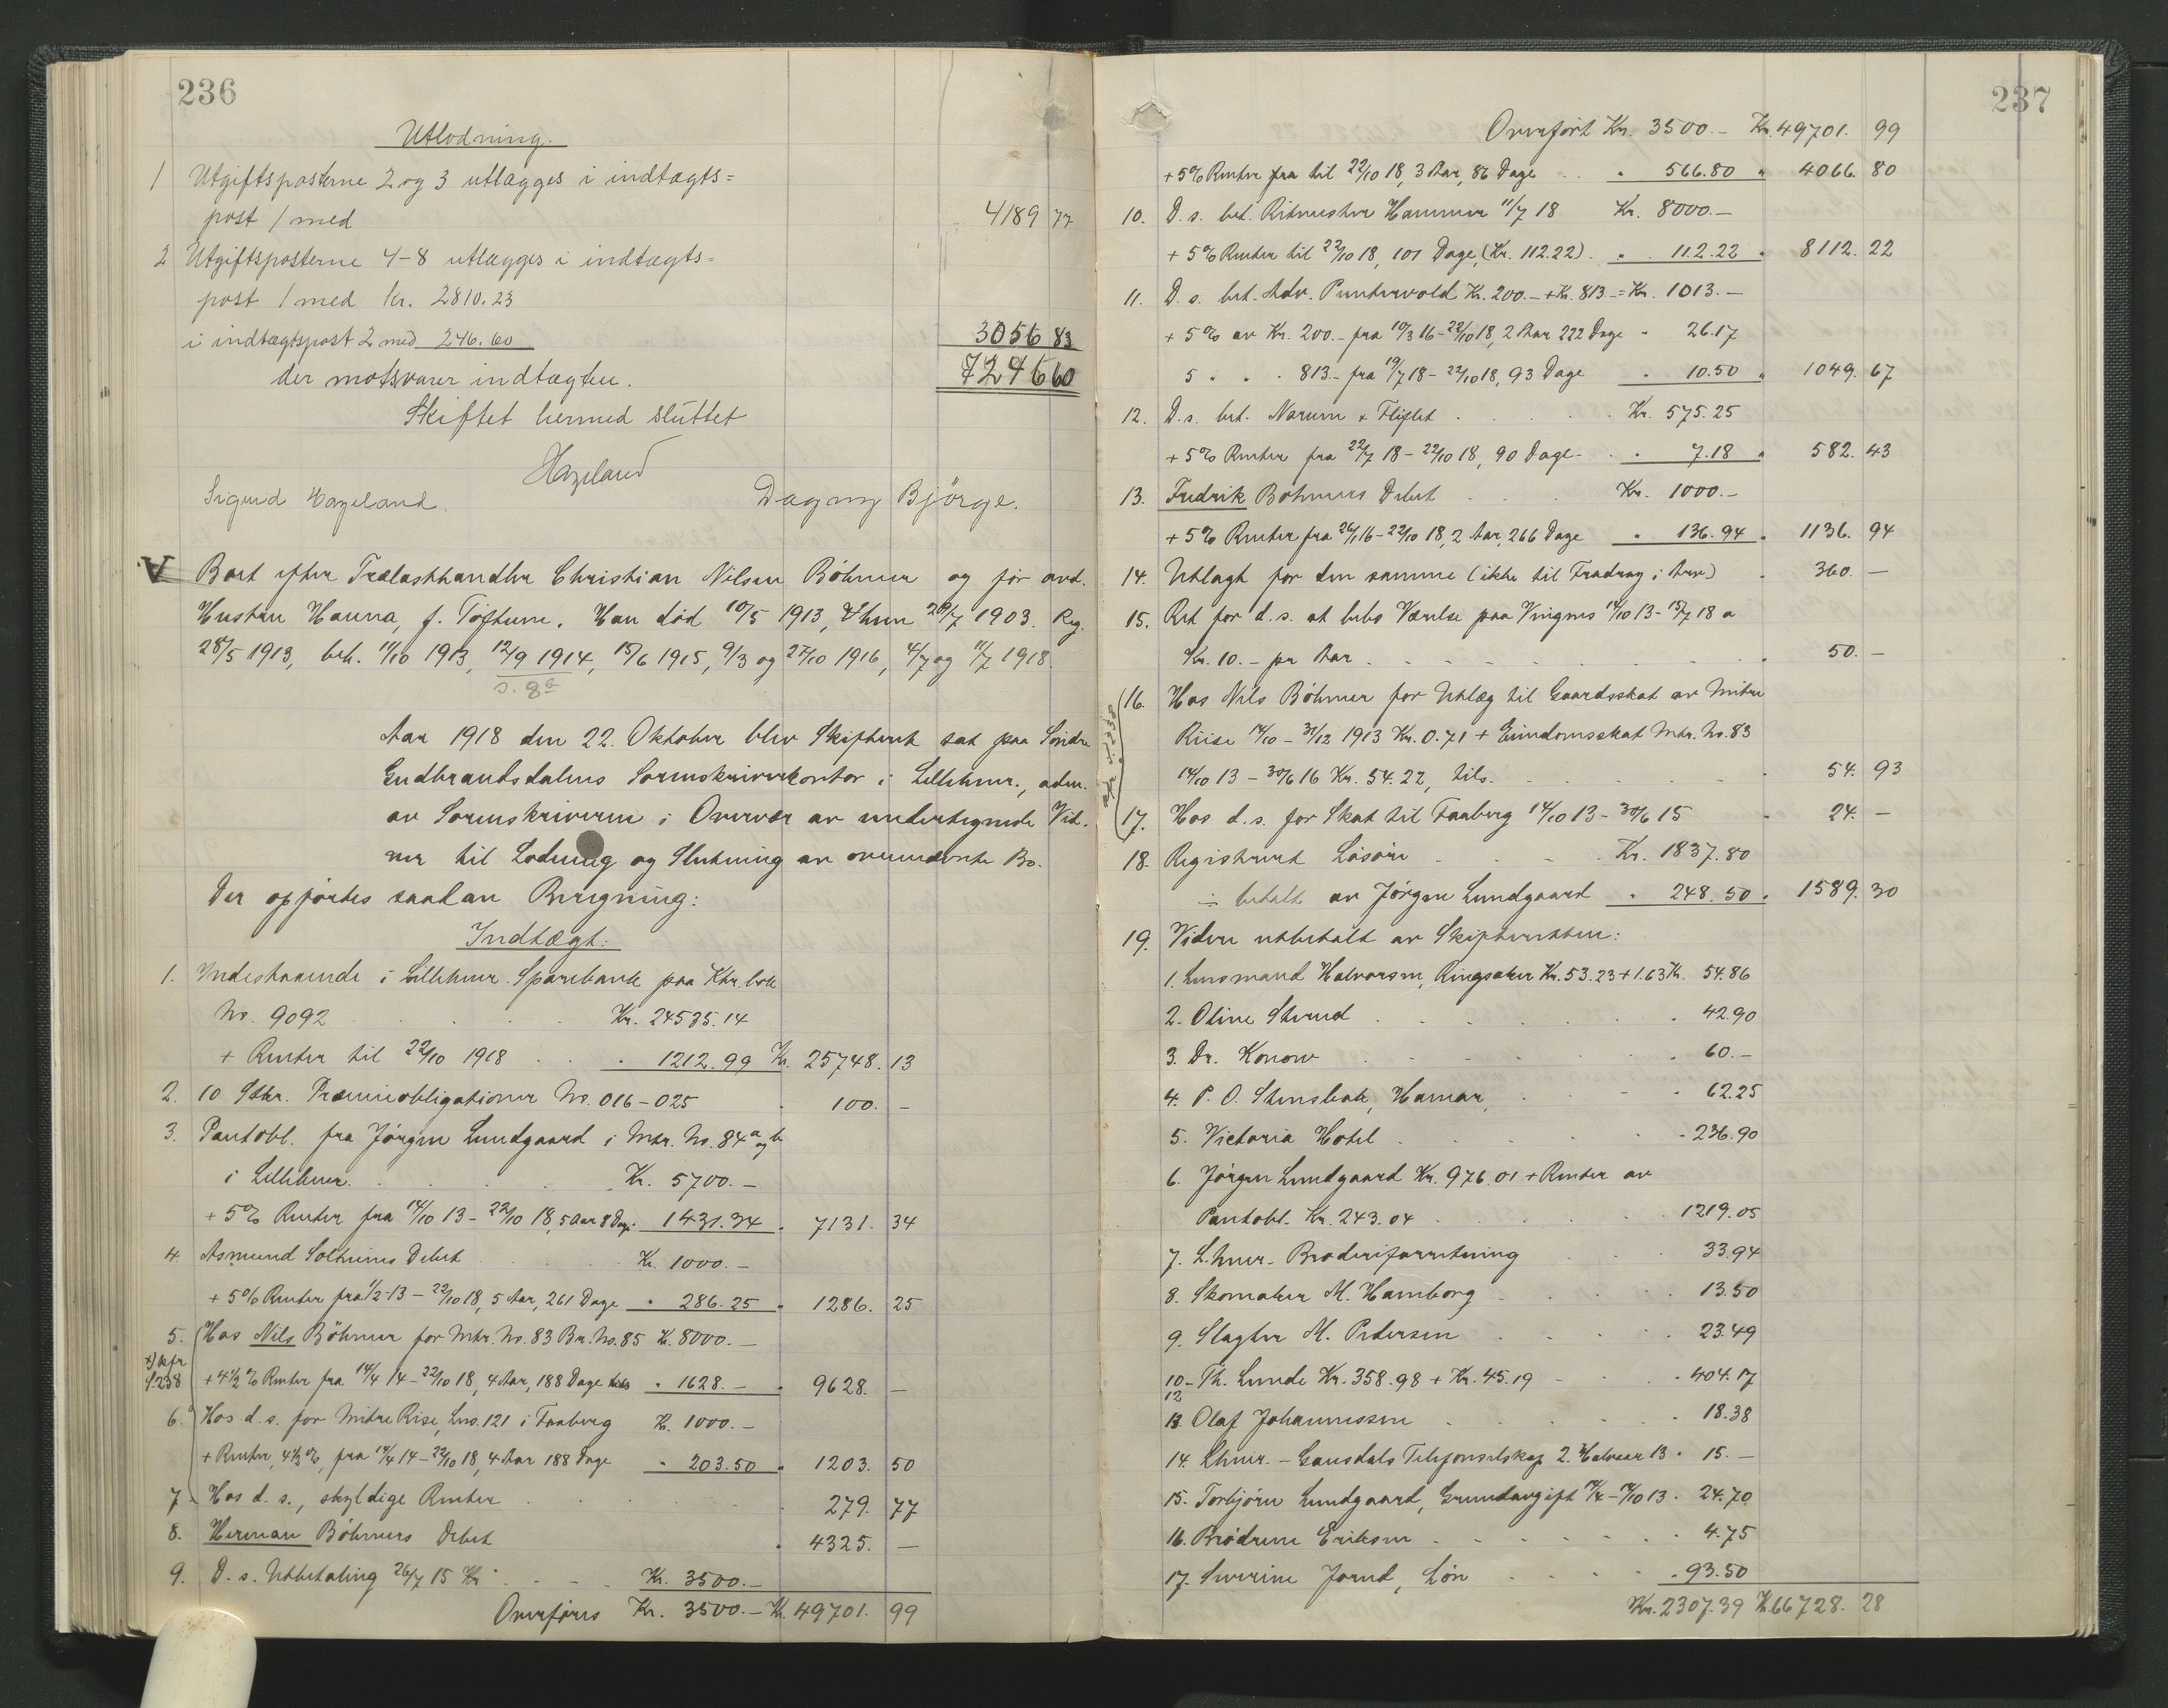 236
Utlodning.
1 Utgiftsposterne 2 og 3 utlægges i indtægts=
post 1 med 4189 77
2 Utgiftsposterne 4-8 utlægges i indtægts=
post 1 med kr. 2810.23
i indtægtspost 2 med 246.60 3056 83
der motsvarer indtægten. 7246 60
Skiftet hermed sluttet
Hazeland
Sigurd Hazeland. Dagny Bjørge.
V Boet efter Trælasthandler Christian Nilsen Böhmer og før avd.
Hustru Hanna, f. Töftum. Han död 10/5 1913, & hun 29/7 1903. Reg.
28/5 1913, beh. 11/10 1913, 12/9 1914, 15/6 1915, 9/3 og 27/10 1916, 4/7 og 11/7 1918.
s. 8
Aar 1918 den 22. Oktober blev Skifteret sat paa Söndre
Gudbrandsdalens Sorenskriverkontor i Lillehmr., adm.
av Sorenskriveren i Overvær av undertegnede Vid-
ner til Lodning og Slutning av ovennævnte Bo.
Der opførtes saadan Beregning:
Indtægt:
1. Indestaaende i Lillehmr. Sparebank paa Ktr. bok
No. 9092 Kr. 24535.14
+ Renter til 22/10 1918 " 1212.99 Kr. 25748. 13
2. 10 Stkr. Præmieobligationer No. 016-025 " 100. -
3. Pantobl. fra Jörgen Lundgaard i Mtr. No. 84 a og b
i Lillehmr. Kr. 5700.-
+ 5% Renter fra 14/10 13 - 22/10 18, 5 Aar 8 Dage " 1431.34 " 7131. 34
4. Asmund Solheims Debet Kr. 1000.-
+ 5% Renter fra 1/2-13 - 22/10 18, 5 Aar, 261 Dage " 286.25 " 1286. 25
5. Hos Nils Böhmer for Mtr. No. 83 Br. No. 85 Kr. 8000.-
x) kfr
S. 238 + 4½% Renter fra 14/4 14 - 22/10 18, 4 Aar, 188 Dage " 1628.- " 9628. -
6. Hos d. s. for Mitre Rise, Lno. 121 i Faaberg Kr. 1000.-
+ Renter, 4½%, fra 14/4 14 - 22/10 18, 4 Aar 188 Dage " 203.50 " 1203. 50
7. Hos d. s., skyldige Renter " 279. 77
8. Herman Böhmers Debet " 4325. -
9. D. s. Utbetaling 26/7 15 Kr. 3500.-
Overføres Kr. 3500.- Kr. 49701. 99
237
Overført Kr. 3500.- Kr. 49701. 99
+ 5% Renter fra til 22/10 18, 3 Aar, 86 Dage " 566.80 " 4066. 80
10. D. s. bet. Ritmester Hammer 11/7 18 Kr. 8000.-
+ 5% Renter til 22/10 18, 101 Dage, (Kr. 112.22) " 112.22 " 8112. 22
11. D. s. bet. Adv. Puntervold Kr. 200.- + Kr. 813.- = Kr. 1013.-
+ 5% av Kr. 200.- fra 10/3 16 - 22/10 18, 2 Aar 222 Dage " 26.17
5 " " " 813.- fra 19/7 18 - 22/10 18, 93 Dage " 10.50 " 1049. 67
12. D. s. bet. Narum & Fliflet Kr. 575.25
+ 5% Renter fra 22/7 18 - 22/10 18, 90 Dage " 7.18 " 582. 43
13. Fredrik Böhmers Debet Kr. 1000.-
+ 5% Renter fra 26/1 16 - 22/10 18, 2 Aar, 266 Dage " 136.94 " 1136. 94
14. Utlagt for den samme (ikke til Fradrag i Arv) " 360. -
15. Ret for d. s. at bebo Værelse paa Vingnes 14/10 13 - 15/7 18 a
Kr. 10.- pr Aar " 50. -
16. Hos Nils Böhmer for Utlæg til Gaardsskat av Mitre
Riise 14/10 - 31/12 1913 Kr. 0.71 + Eiendomsskat Mtr. No. 83
14/10 13 - 30/6 16 Kr. 54.22, tils. " 54. 93
17. Hos d. s. for Skat til Faaberg 14/10 13 - 30/6 15 " 24. -
18. Registreret Lösöre Kr. 1837.80
÷ betalt av Jörgen Lundgaard " 248.50 " 1589. 30
19. Videre utbetalt av Skifteretten:
1. Lensmand Halvorsen, Ringsaker Kr. 53.23 + 1.63 Kr. 54.86
2. Oline Strand " 42.90
3. Dr. Konow " 60.-
4. P. O. Stensbak, Hamar, " 62.25
5. Victoria Hotel " 236.90
6. Jörgen Lundgaard Kr. 976.01 + Renter av
Pantobl. Kr. 243.04 1219.05
7. L.hmr. Broderiforretning 33.94
8. Skomaker M. Hamborg 13.50
9. Slagter M. Pedersen 23.49
10-12 Th. Lunde Kr. 358.98 + Kr. 45.19 " 404.17
13. Olaf Johannessen " 18.38
14. Lhmr. - Gausdals Telefonselskap 2. Halvaar 13 " 15.-
15. Torbjörn Lundgaard, Grundavgift 14/4 - 14/10 13 " 24.70
16. Brödrene Eriksen " 4.75
17. Severine Jorud, Lön " 93.50
Kr. 2307.39 Kr. 66728. 28